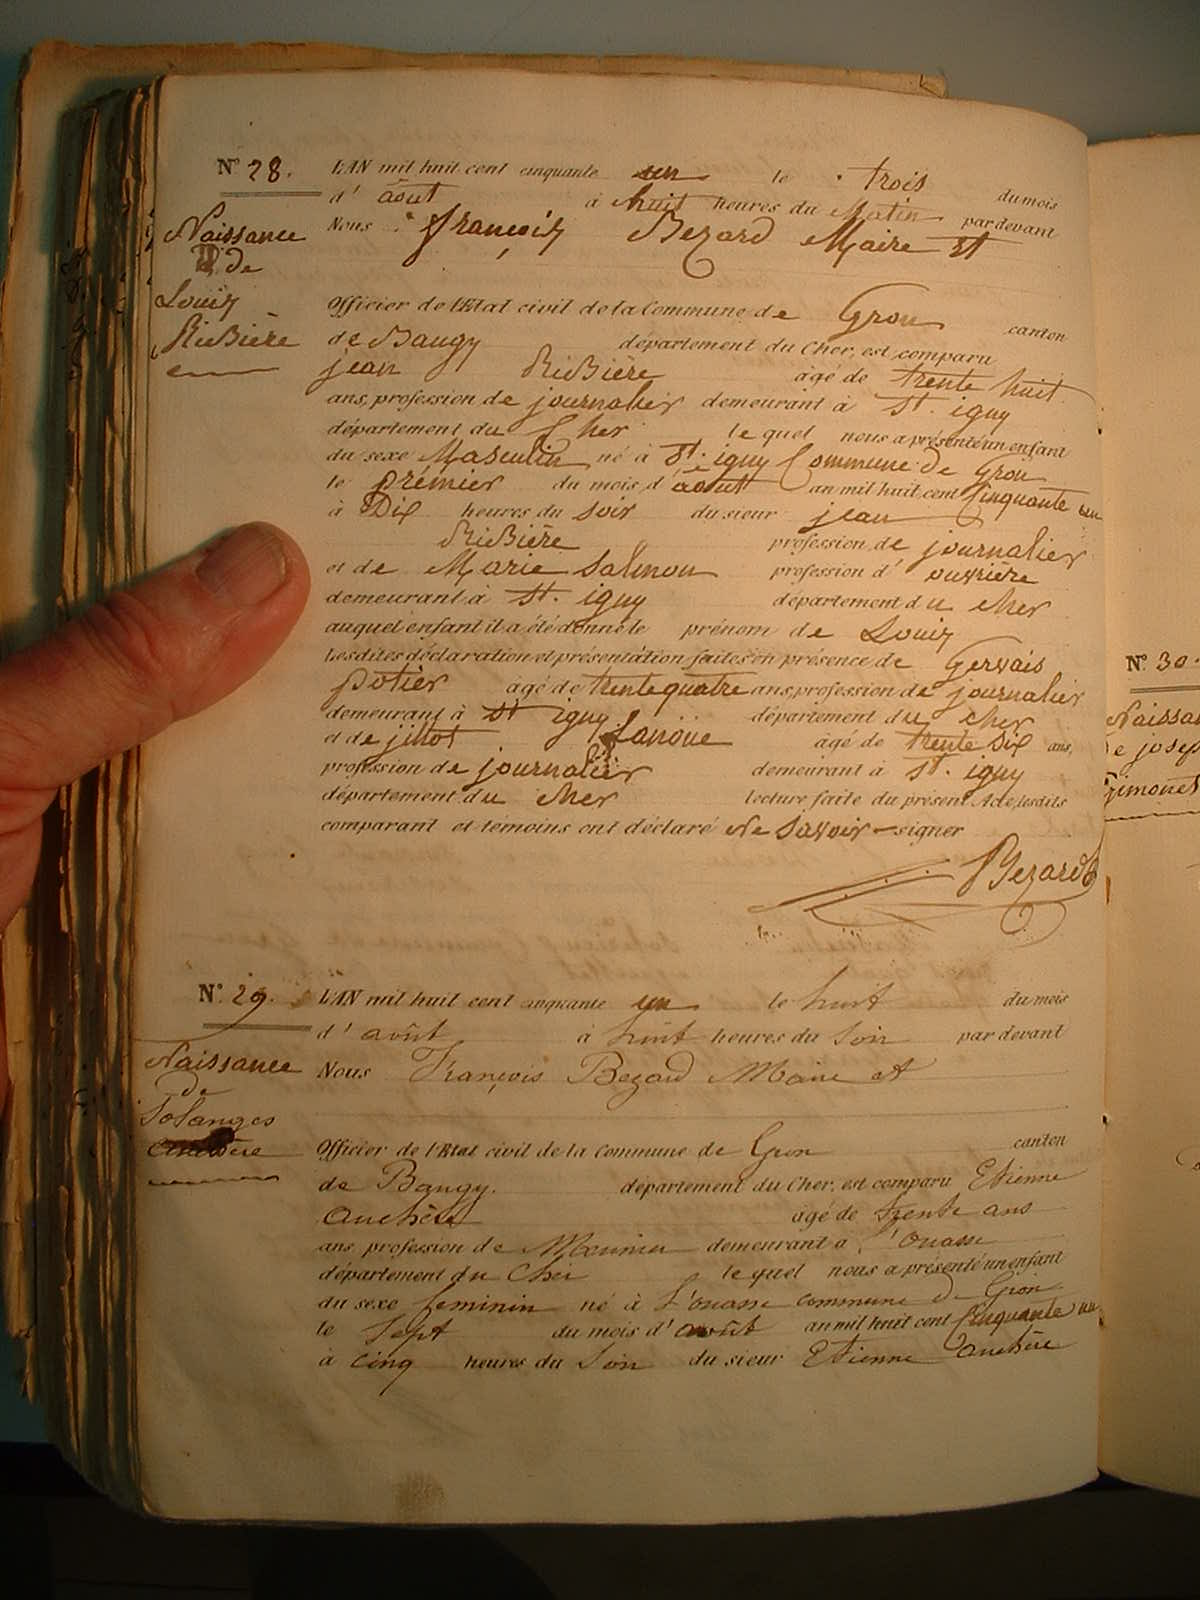 N° 28.
Naissance
de
Louis
RiBière
L'AN mil huit cent cinquante un le trois du mois
d'août à huit heures du Matin par devant
Nous François Bezard Maire et
Officier de l'Etat civil de la Commune de Gron canton
de Baugy département du Cher, est comparu
jean RiBière âgé de trente huit
ans, profession de journalier demeurant à St. igny
département du Cher lequel nous a présenté un enfant
du sexe Masculin né à St. igny Commune de Gron
le prémier du mois d'août an mil huit cent Cinquante un
à Dix heures du soir du sieur jean
RiBière profession de journalier
et de Marie Salmon profession d'ouvrière
demeurant à St. igny département du cher
auquel enfant il a été donné le prénom de Louis
Lesdites déclaration et présentation faites en présence de Gervais
potier âgé de trente quatre ans, profession de journalier
demeurant à St igny département du cher
et de jillot Lanöue âgé de trente Six ans,
profession de journalier demeurant à St. igny
département du cher lecture faite du présent Acte, lesdits
comparant et témoins ont déclaré Ne Savoir signer
Bezard
N° 29.
Naissance
de
Solanges
Auchère
L'AN mil huit cent cinquante un le huit du mois
d'août à huit heures du Soir par devant
Nous François Bezard Maire et
Officier de l'Etat civil de la Commune de Gron canton
de Baugy. département du Cher, est comparu Etienne
Auchère âgé de trente ans
ans profession de Meunier demeurant à l'ouasse
département du Cher lequel nous a présenté un enfant
du sexe feminin né à L'ouasse commune de Gron
le Sept du mois d'août an mil huit cent Cinquante un
à cinq heures du Soir du sieur Etienne Auchère
N° 30.
Naissan
de josep
Grimonet